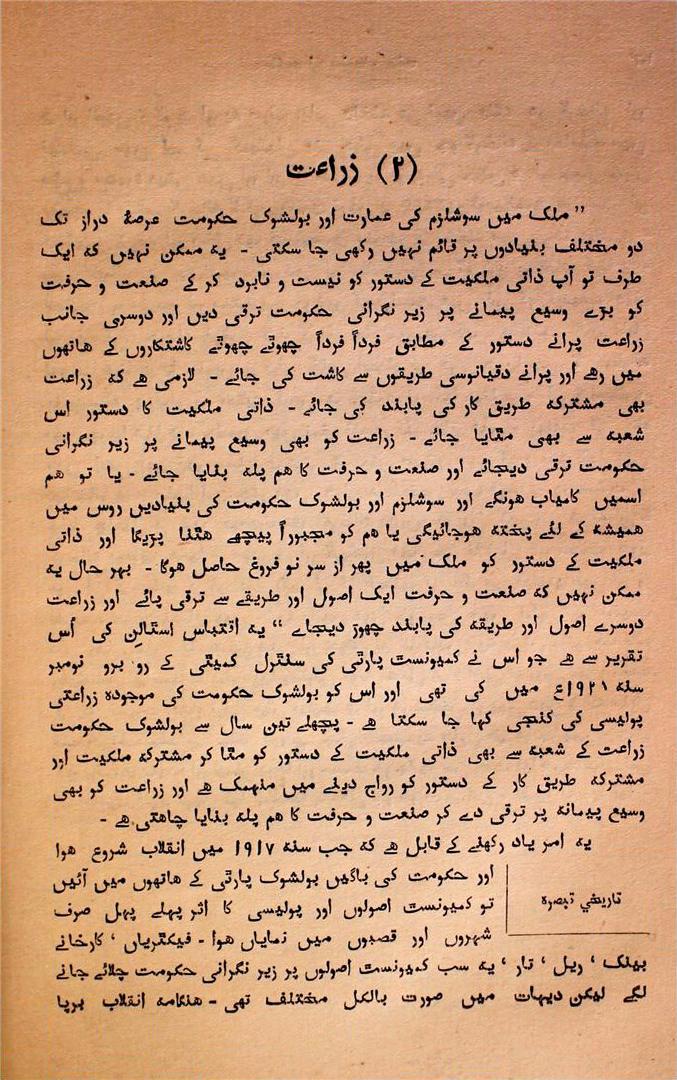 (۲) زراعت
” ملک میں سوشلزم کی عمارت اور بولشوک حکومت عرصۂ دراز تک
دو مختلف بنیادوں پر قائم نہیں رکھی جا سکتی - یہ ممکن نہیں کہ ایک
طرف تو آپ ذاتی ملکیت کے دستور کو نیست و نابود کر کے صنعت و حرفت
کو بڑے وسیع پیمانے پر زیر نگرانی حکومت ترقی دیں اور دوسری جانب
زراعت پرانے دستور کے مطابق فرداً فرداً چھوٹے چھوٹے کاشتکاروں کے ھاتھوں
میں رھے اور پرانے دقیانوسی طریقوں سے کاشت کی جائے - لازمی ھے کہ زراعت
بھی مشترکہ طریق کار کی پابند کی جائے - ذاتی ملکیت کا دستور اس
شعبہ سے بھی مٹایا جائے - زراعت کو بھی وسیع پیمانے پر زیر نگرانی
حکومت ترقی دیجائے اور صنعت و حرفت کا ھم پلہ بنایا جائے - یا تو ھم
اسمیں کامیاب ھونگے اور سوشلزم اور بولشوک حکومت کی بنیادیں روس میں
ھمیشہ کے لئے پختہ ھوجائیگی یا ھم کو مجبوراً پیچھے ھٹنا پڑیگا اور ذاتی
ملکیت کے دستور کو ملک میں پھر از سر نو فروغ حاصل ھوگا - بہر حال یہ
ممکن نہیں کہ صنعت و حرفت ایک اصول اور طریقے سے ترقی پائے اور زراعت
دوسرے اصول اور طریقہ کی پابند چھوڑ دیجاے “ یہ اقتباس استالن کی اُس
تقریر سے ھے جو اس نے کمیونسٹ پارٹی کی سنٹرل کمیٹی کے رو برو نومبر
سنہ ۱۹۲۱ع میں کی تھی اور اس کو بولشوک حکومت کی موجودہ زراعتی
پولیسی کی کنجی کہا جا سکتا ھے - پچھلے تین سال سے بولشوک حکومت
زراعت کے شعبہ سے بھی ذاتی ملکیت کے دستور کو مٹا کر مشترکہ ملکیت اور
مشترکہ طریق کار کے دستور کو رواج دینے میں منہمک ھے اور زراعت کو بھی
وسیع پیمانہ پر ترقی دے کر صنعت و حرفت کا ھم پلہ بنایا چاھتی ھے -
یہ امر یاد رکھنے کے قابل ھے کہ جب سنہ ۱۹۱۷ میں انقلاب شروع ھوا
تاریخی تبصرہ
اور حکومت کی باگیں بولشوک پارٹی کے ھاتھوں میں آئیں
تو کمیونسٹ اصولوں اور پولیسی کا اثر پہلے پہل صرف
شہروں اور قصبوں میں نمایاں ھوا - فیکٹریاں ‘ کارخانے
بینک ‘ ریل ‘ تار ‘ یہ سب کمیونسٹ اصولوں پر زیر نگرانی حکومت چلائے جانے
لگے لیکن دیہات میں صورت بالکل مختلف تھی - ھنگامہ انقلاب برپا